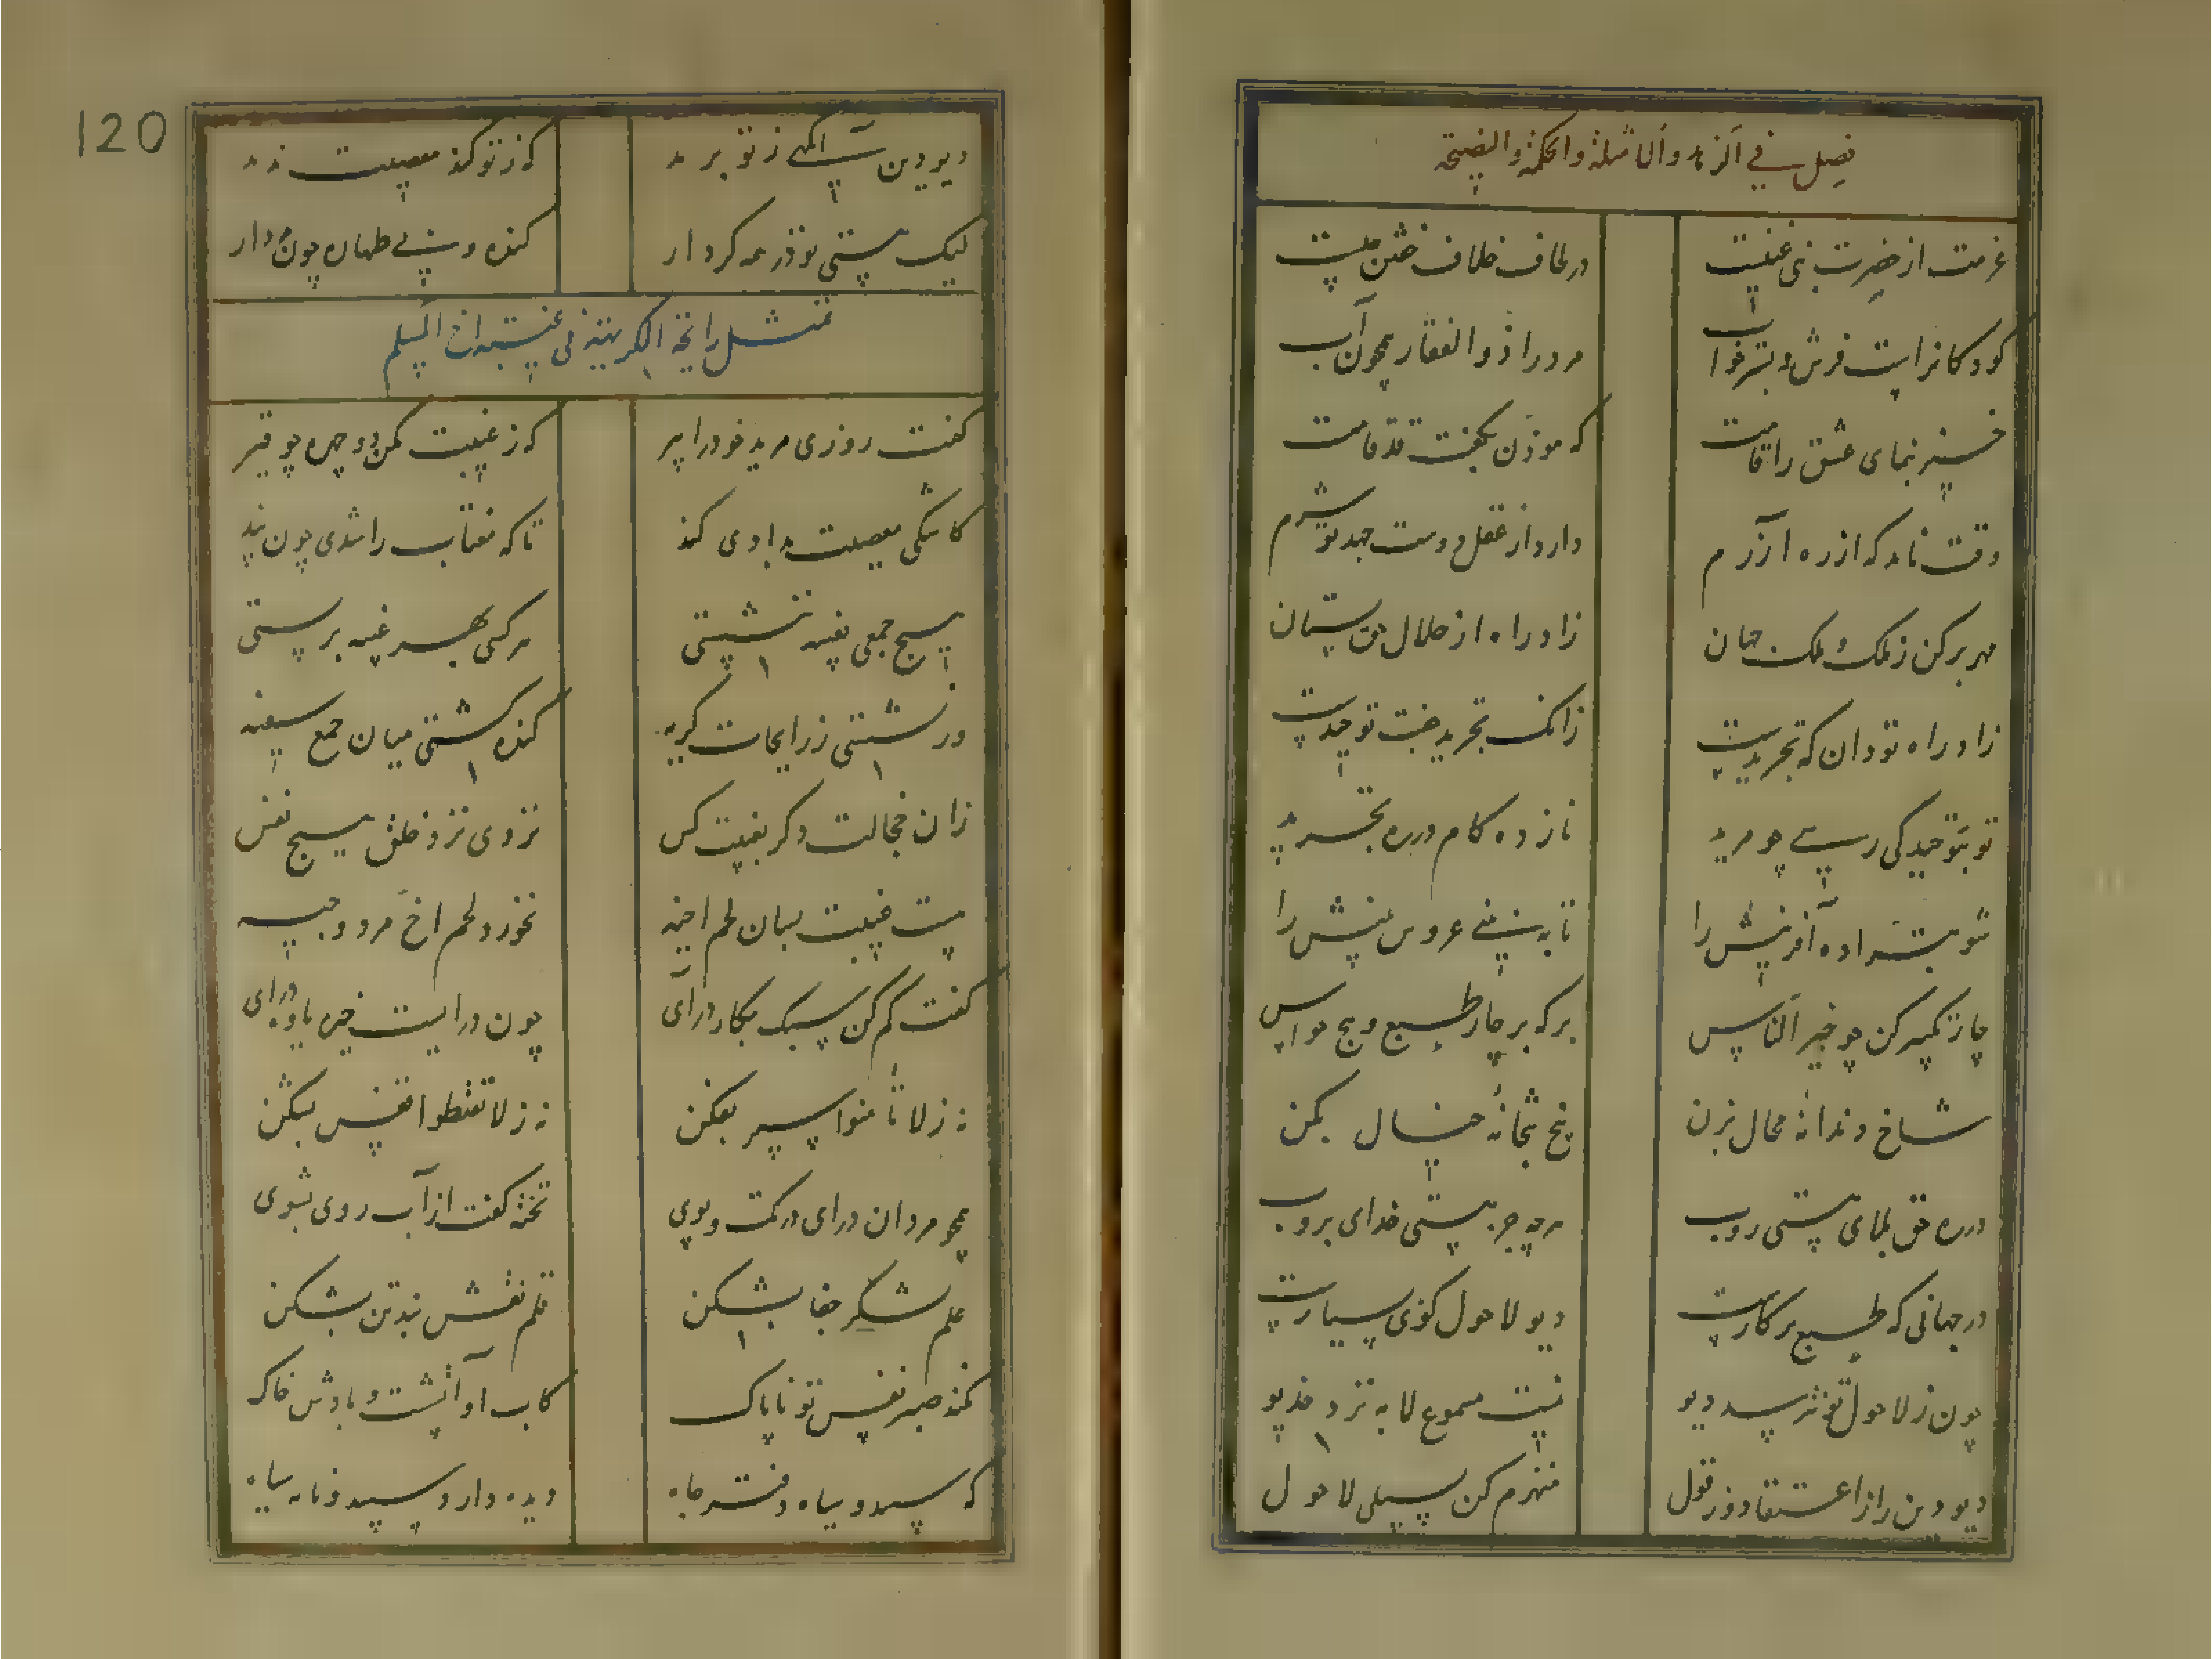 فصل فی الزهد والامثلة والحکمة والنصیحة
عزمت از حضرت نبی غیبست در لحاف خلاف خفتن چیست
کودکانراست فرش و بستر خواب مرد را ذوالفقار همچون آب
خیز بنمای عشق را قامت که موذن بگفت قد قامت
وقت نامد که از ره آزرم دارد از عقل و دست جهد تو شرم
مهر برکن ز ملک و ملک جهان زاد راه از حلال حق بستان
زاد راه تو دان که تجریدست زانک تجرید جفت توحیدست
تو بتوحید کی رسی چو مرید نازده کام در ره تجرید
آفرینش را تا به بینی عروس بینش را
چار تکبیر کن چو خیر الناس برکه بر چار طبع و پنج حواس
شاخ دندانه محال بزن بیخ بتخانه خیال بکن
در ره حق بلای هستی روب هرچه جز هستی خدای بروب
در جهانی که طبع بر کارست دیو لاحول کوی بسیارست
چون ز لاحول تو نترسد دیو نیست مسموع لابه نزد خدیو
دیو دین را ز اعتقاد و ز قول منهزم کن بسیلی لاحول
120
دیو دین آنکهی ز تو برمد که ز تو کند معصیت ندمد
لیک هستی تو در همه کردار کنده و بی طهاره چون مردار
تمثل رایحة الکریهة فی غیبة اخ المسلم
کفت روزی مرید خود را پیر که ز غیبت مکن دو چهره چو قیر
کاشکی معصیت بدادی کند تا که مغتاب را شدی چون بند
هیچ جمعی بغیبه ننشستی هر کسی بهر غیبه برپستی
ور نشستی ز رایحات کریه کنده کشتی میان جمع سفیه
زان خجالت دکر بغیبت کس نزدی نزد خلق هیچ نفس
هست غیبت بسان لحم اخیه نخورد لحم اخ مرد وجیه
کفت کم کن سبک بکار درآی چون درایست خیره یاوه درای
نه ز لا تأمنوا سپر بفکن نه ز لا تقنطوا قفس بشکن
همچو مردان درای در تک و پوی تخته کفت از آب روی بشوی
علم لشکر جفا بشکن قلم نقش بند تن بشکن
نکند صبر نفس تو ناپاک کاب او آتشست و بادش خاک
که سپید و سیاه دفتر جاه دیده دارد سپید و نامه سیاه